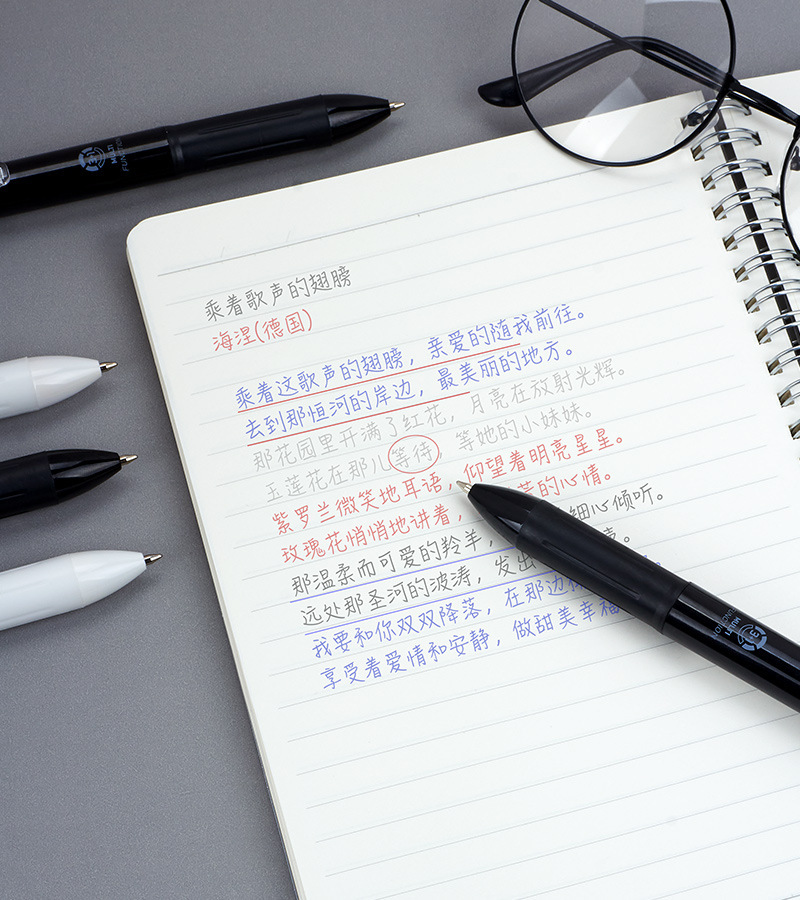 乘着歌声的翅膀
海涅(德国)
乘着这歌声的翅膀，亲爱的随我前往。
去到那恒河的岸边，最美丽的地方。
那花园里开满了红花，月亮在放射光辉。
玉莲花在那儿等待，等她的小妹妹。
紫罗兰微笑地耳语，仰望着明亮星星。
玫瑰花悄悄地讲着，的心情。
那温柔而可爱的羚羊，细心倾听。
远处那圣河的波涛，发出声。
我要和你双双降落，在那边
享受着爱情和安静，做甜美幸福
MULTI
FUNCTION
MULTI
FUNCTION